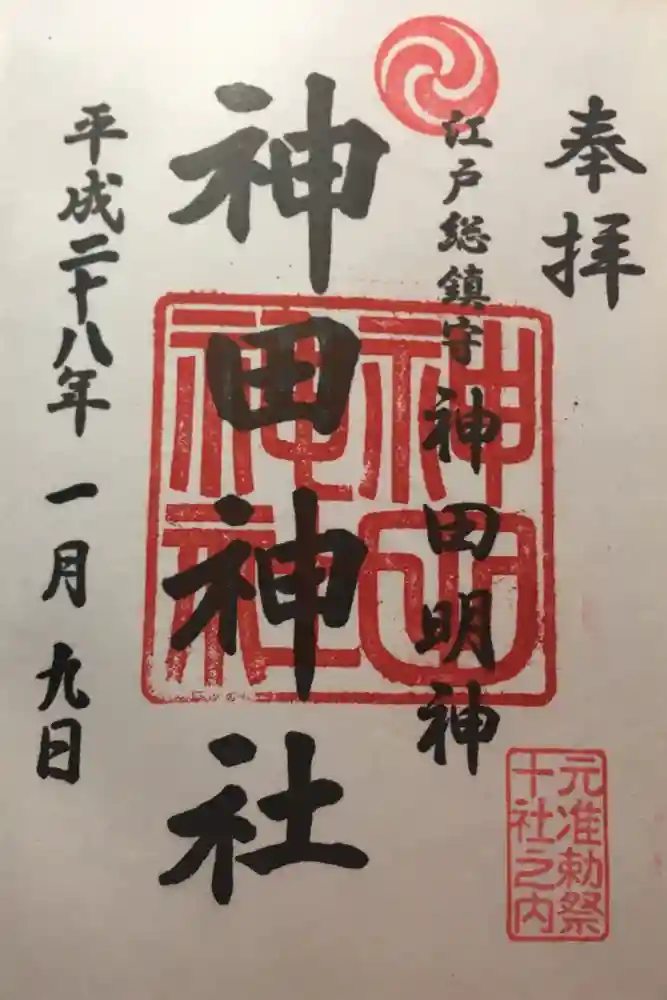 奉拝
江戸総鎮守 神田明神
神田神社
平成二十八年 一月 九日
神田
神社
元准勅祭
十社之内